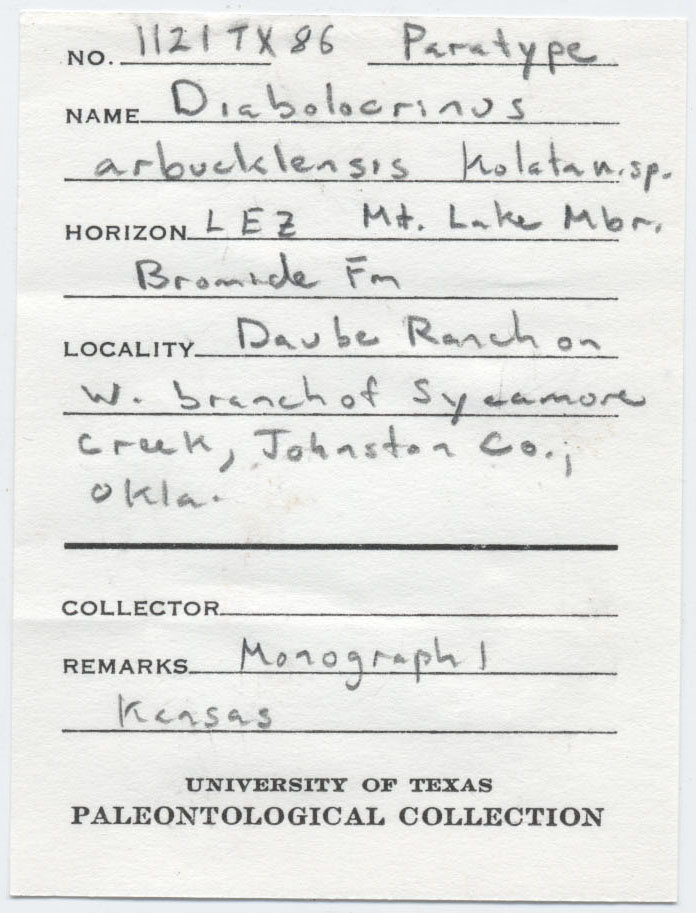 NO. 1121TX86 Paratype
NAME Diabolocrinus
arbucklensis Kolata n.sp.
HORIZON LEZ Mt. Lake Mbr.
Bromide Fm
LOCALITY Daube Ranch on
W. branch of Sycamore
Creek, Johnston Co.,
Okla.
COLLECTOR
REMARKS Monograph 1
Kansas
UNIVERSITY OF TEXAS
PALEONTOLOGICAL COLLECTION